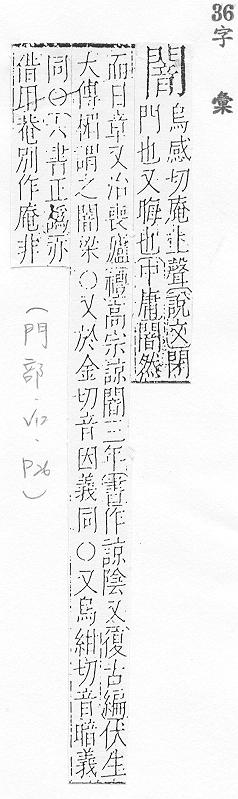 36字彙
闇烏感切庵上聲說文閉
門也又晦也中庸闇然
而日章又治喪廬禮高宗諒闇三年書作諒陰又復古編伏生
大傳楣謂之闇梁○又於金切音因義同○又烏紺切音暗義
同○六書正譌亦
借用菴別作庵非
(門部.V12.P26)